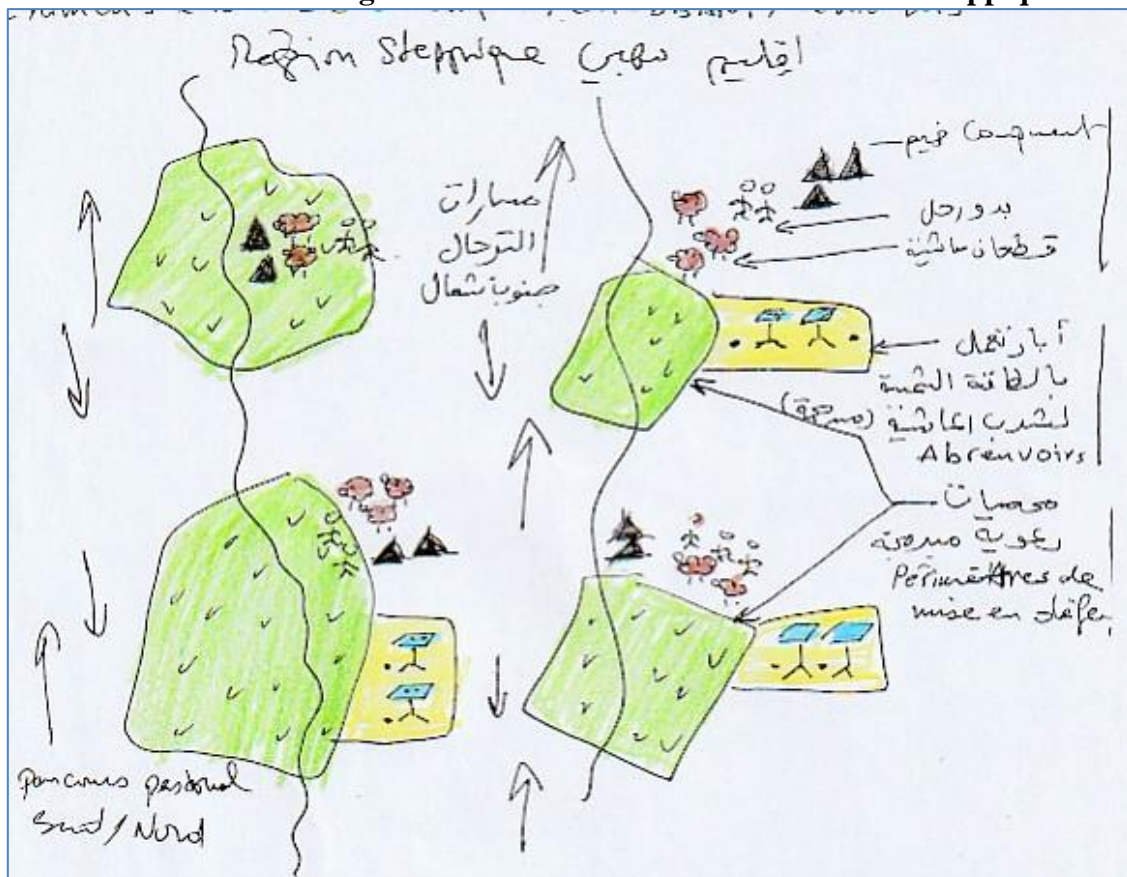 Région Steppique إقليم سهبي
مسارات
الترحال
جنوب شمال
خيم Campement
بدو رحل
قطعان ماشية
أبار تعمل
بالطاقة الشمسية
لشرب الماشية
Abreuvoirs
محميات
رعوية مبرمجة
Périmètres de
mise en défen
Parcours pastoral
Sud/Nord